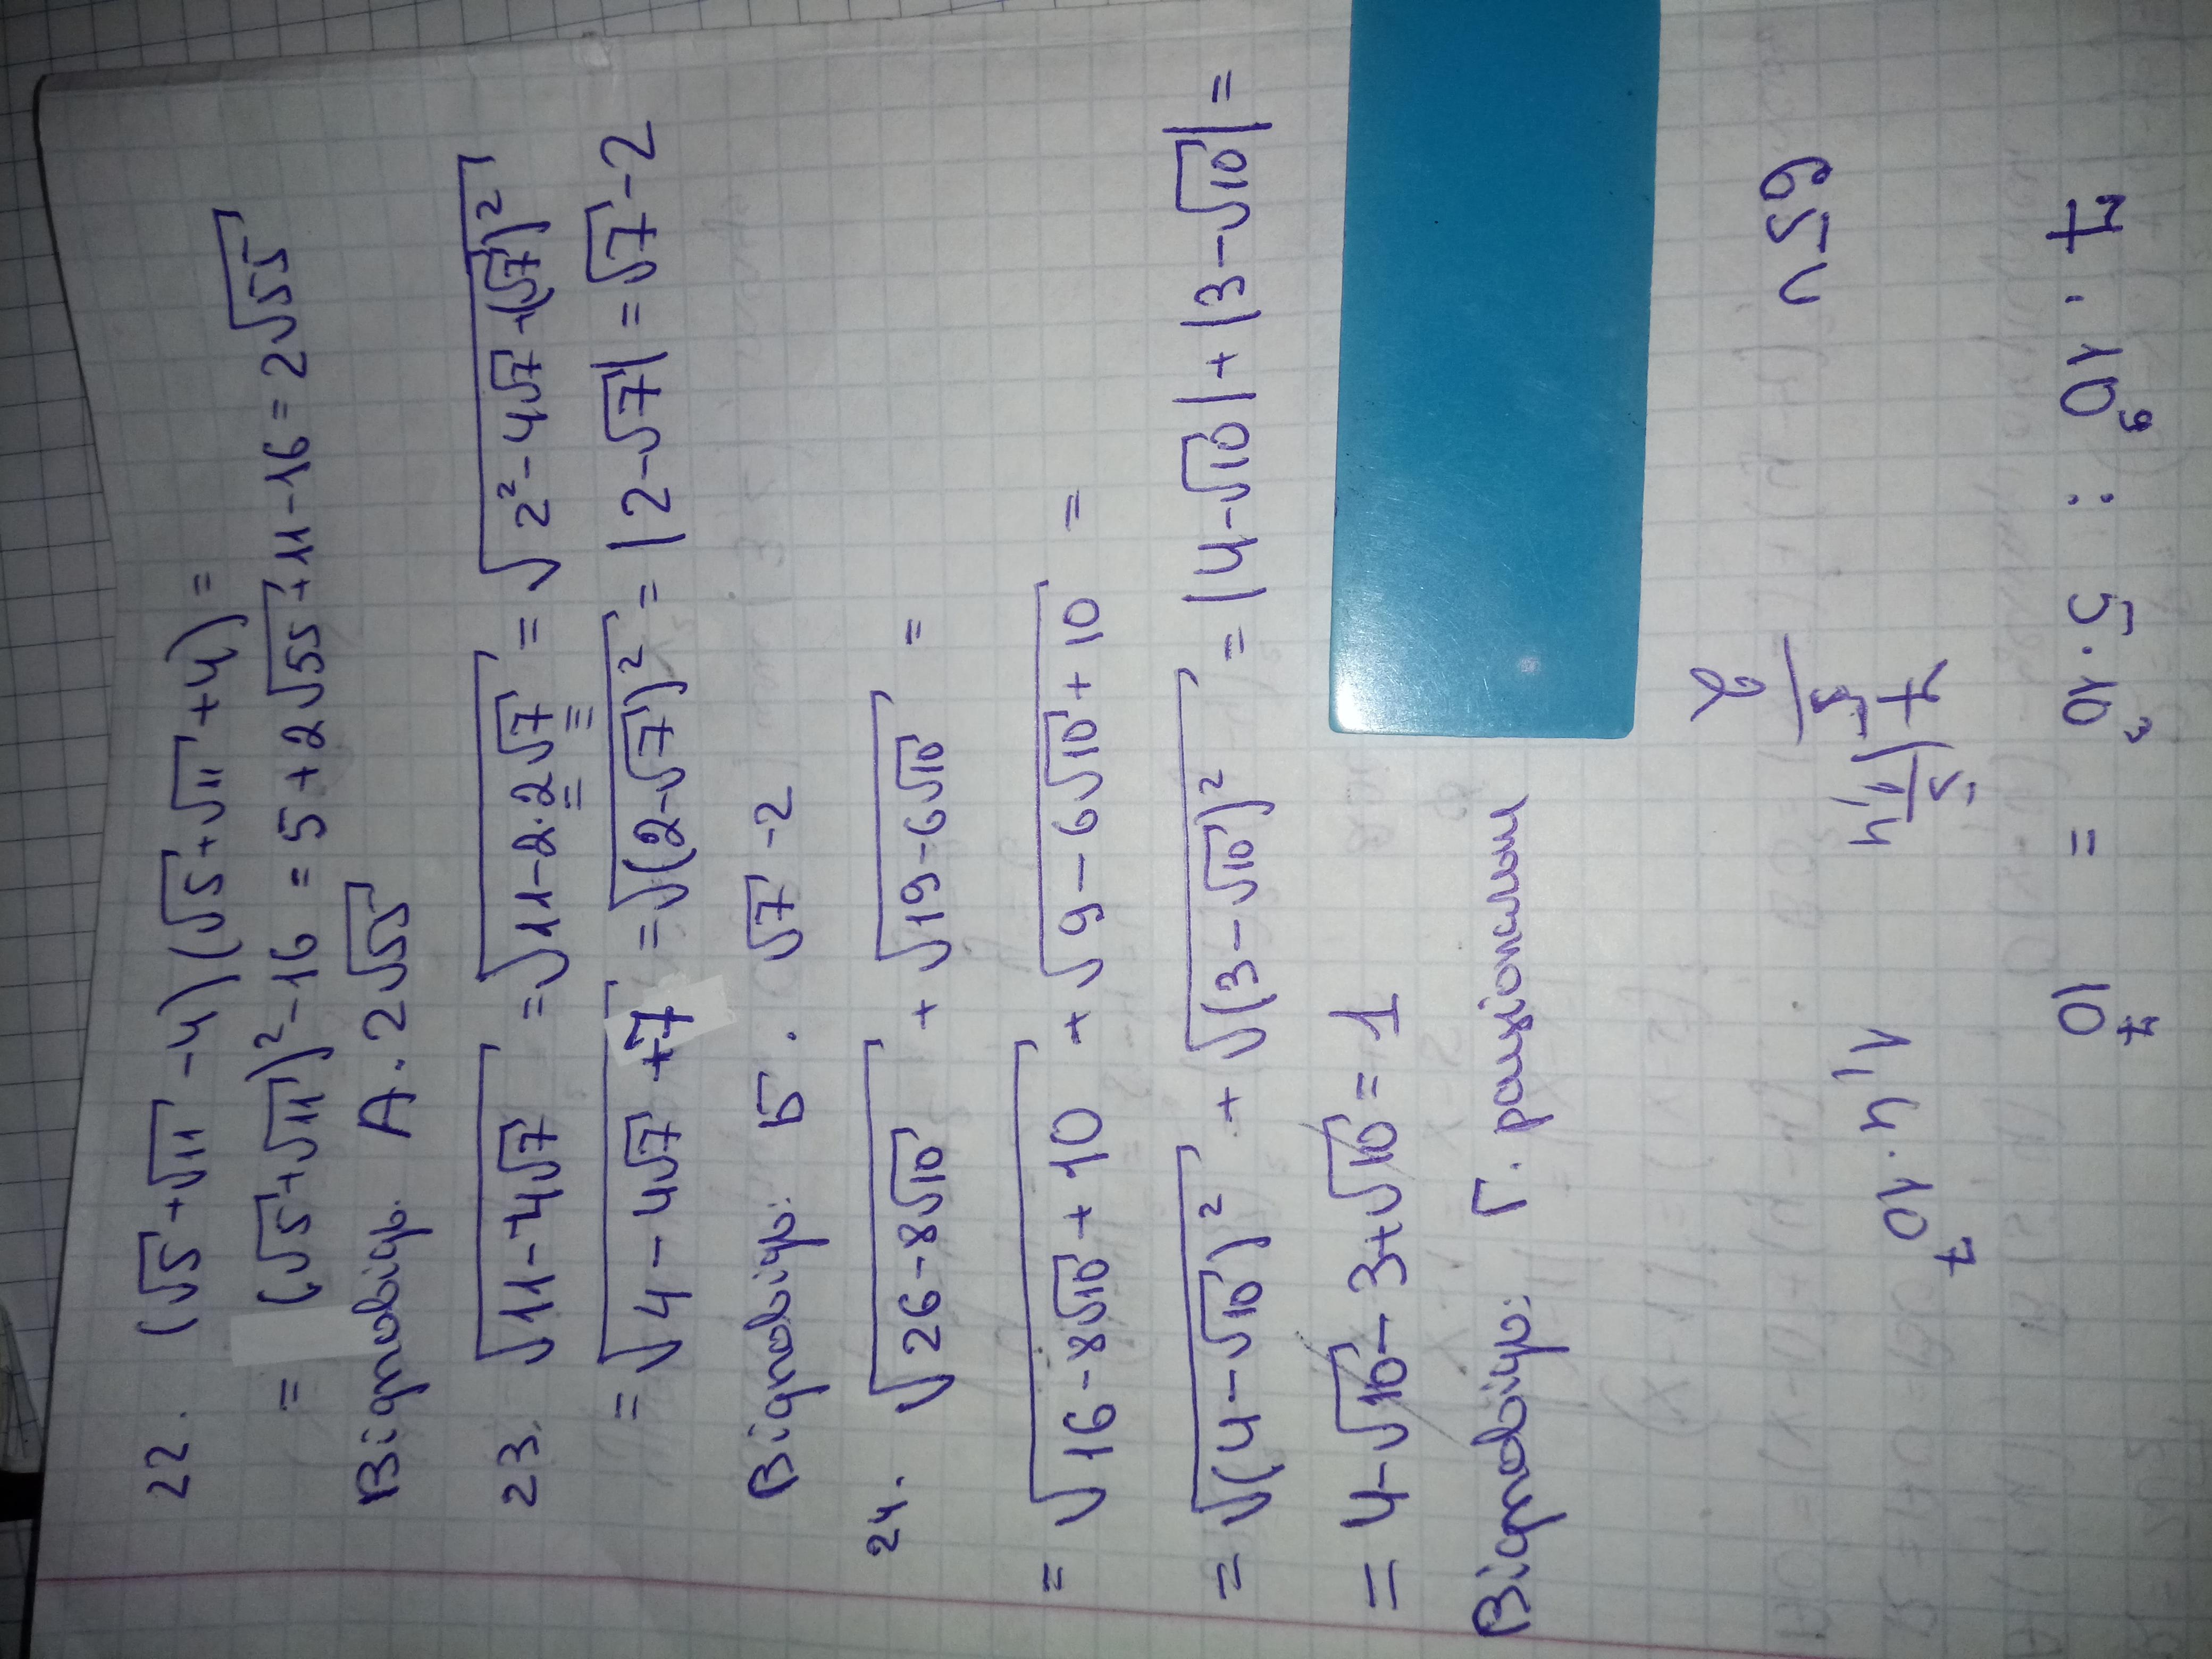 22. (√5+√11 -4)(√5+√11+4)=
= (√5+√11)²-16 = 5+2√55+11-16=2√55
Відповідь. А. 2√55
23. √11-4√7 =√11-2·2√7 = √2²-4√7+(√7)²
=√4-4√7+7 =√(2-√7)² = |2-√7| =√7-2
Відповідь: Б. √7-2
24. √26-8√10 + √19-6√10 =
= √16-8√10+10 + √9-6√10+10 =
= √(4-√10)² + √(3-√10)² = |4-√10|+|3-√10|=
= 4-√10-3+√10=1
Відповідь: Г. раціональним